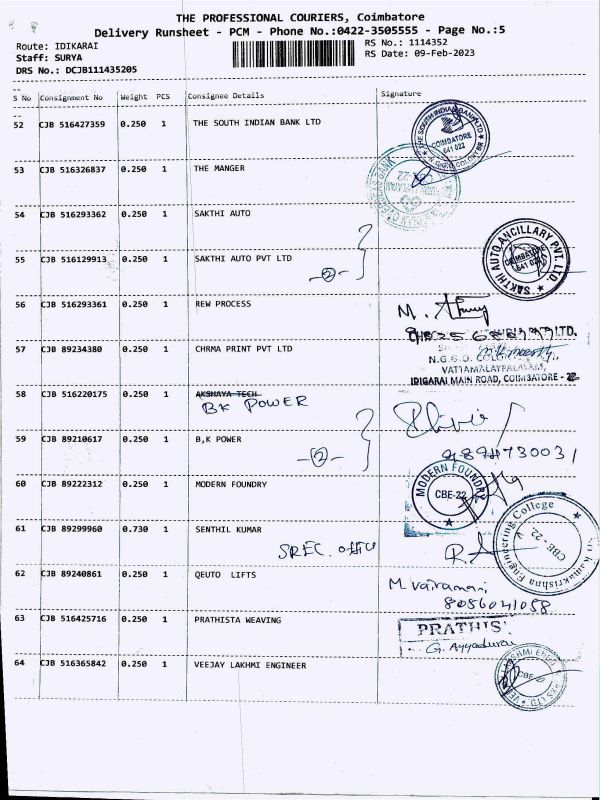 THE PROFESSIONAL COURIERS, Coimbatore
Delivery Runsheet - PCM - Phone No.:0422-3505555 - Page No.:5
Route: IDIKARAI
RS No.: 1114352
Staff: SURYA
RS Date: 09-Feb-2023
DRS No.: DCJB111435205
S No Consignment No Weight PCS Consignee Details Signature
52 CJB 516427359 0.250 1 THE SOUTH INDIAN BANK LTD
THE SOUTH INDIAN BANK LTD
COIMBATORE
641 022
N.G.G.O. COLONY BR
53 CJB 516326837 0.250 1 THE MANGER
54 CJB 516293362 0.250 1 SAKTHI AUTO
55 CJB 516129913 0.250 1 SAKTHI AUTO PVT LTD
-2-
SAKTHI AUTO ANCILLARY PVT. LTD.
COIMBATORE
641 022
56 CJB 516293361 0.250 1 REW PROCESS
M.
57 CJB 89234380 0.250 1 CHRMA PRINT PVT LTD
LTD.
N.G.G.O. COLONY
VATTAMALAYPALAYAM,
IDIGARAI MAIN ROAD, COIMBATORE - 22.
58 CJB 516220175 0.250 1 AKSHAYA TECH
BK POWER
59 CJB 89210617 0.250 1 B,K POWER
-2-
9894730031
60 CJB 89222312 0.250 1 MODERN FOUNDRY
MODERN FOUNDRY
CBE-22
61 CJB 89299960 0.730 1 SENTHIL KUMAR
SREC. office
Sri Ramakrishna Engineering College
CBE-22.
62 CJB 89240861 0.250 1 QEUTO LIFTS
M. Vairamani
8056041058
63 CJB 516425716 0.250 1 PRATHISTA WEAVING
PRATHIS
G. Ayyadurai
64 CJB 516365842 0.250 1 VEEJAY LAKHMI ENGINEER
CBE-22